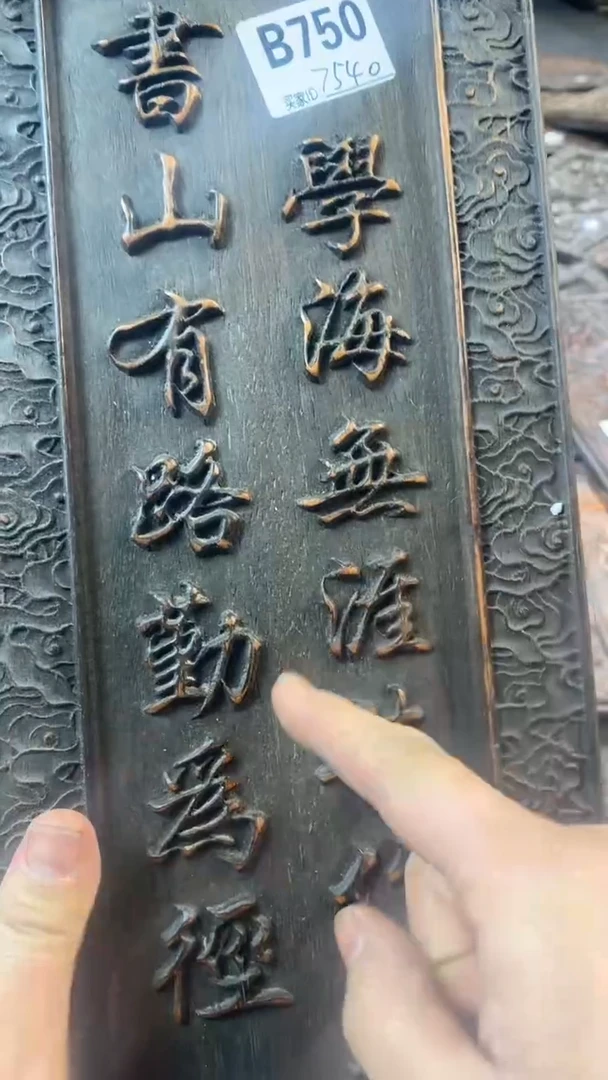 B750
买家ID 7540
書山有路勤為徑
學海無涯